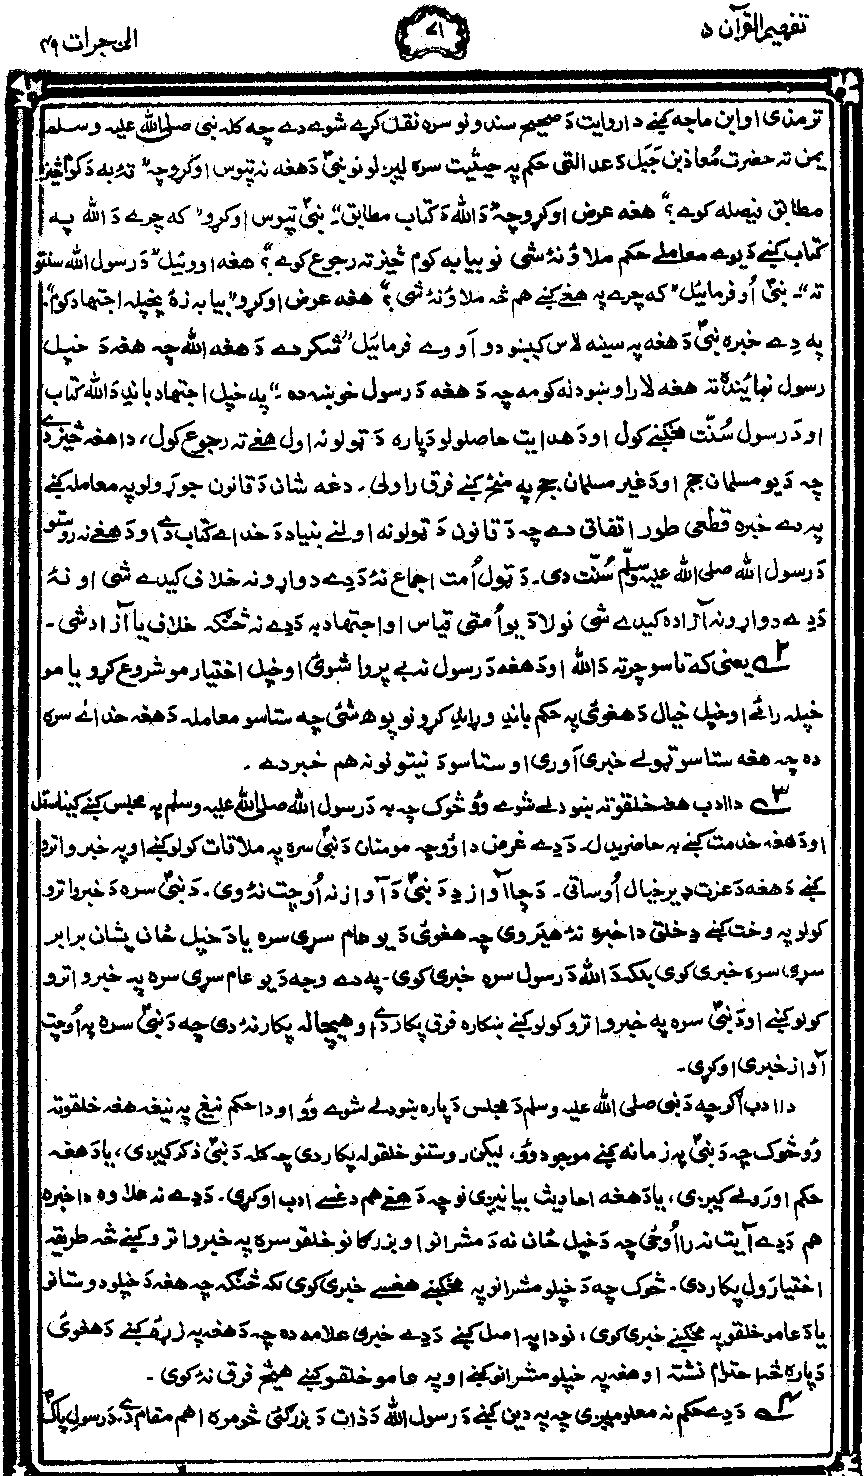 تفهیم القرآن د
۷۱
الحجرات ۴۹
ترمذی او ابن ماجه کښے دا روایت دَ صحیح سندونو سره نقل کړے شوے دے چه کله نبی صلی الله علیه وسلم
یمن ته حضرت مُعاذ بن جبل دَ عدالتی حکم په حیثیت سره لیږلو نو نبیؐ دَ هغه نه تپوس اوکړو چه "ته به دَ کوم څیز
مطابق فیصله کوے؟" هغه عرض اوکړو چه "دَ الله دَ کتاب مطابق"۔ نبیؐ تپوس اوکړو "که چرے دَ الله په
کتاب کښے دَ یوے معاملے حکم ملاؤ نهٔ شی نو بیا به کوم څیز ته رجوع کوے؟" هغه اووئیل "دَ رسول الله سنتو
ته"۔ نبیؐ اُوفرمائیل "که چرے په هغے کښے هم څه ملاؤ نهٔ شی؟" هغه عرض اوکړو "بیا به زهٔ پخپله اجتهاد کوم"۔
په دے خبره نبیؐ دَ هغه په سینه لاس کیښودو آو وے فرمائیل "شکر دے دَ هغه الله چه هغه دَ خپل
رسول نمائنده ته هغه لار اوښودله کومه چه دَ هغه دَ رسول خوښه ده۔" په خپل اجتهاد باندِ دَ الله کتاب
او دَ رسول سُنّت مخکښے کول او دَ هدایت حاصلولو دَپاره دَ ټولو نه اول هغے ته رجوع کول، دا هغه څیز دے
چه دَ یو مسلمان جج او دَ غیر مسلمان جج په منځ کښے فرق راولی۔ دغه شان دَ قانون جوړولو په معامله کښے
په دے خبره قطعی طور اتفاق دے چه دَ قانون دَ ټولو نه اولنے بنیاد دَ خدائے کتاب دے او دَ هغے نه روستو
دَ رسول الله صلی الله علیه وسلّم سُنّت دی۔ دَ ټول اُمت اجماع نهٔ دَ دے دواړو نه خلاف کیدے شی او نهٔ
دَ دے دواړو نه آزاده کیدے شی نو لا دَ یو اُمتی قیاس او اجتهاد به دَ دے نه څنګه خلاف یا آزاد شی۔
۲ یعنی که تاسو چرته دَ الله او دَ هغه دَ رسول نه بے پروا شوئ او خپل اختیار مو شروع کړو یا مو
خپله رائے او خپل خیال دَ هغوئ په حکم باندِ وړاندِ کړو نو پوهه شئ چه ستاسو معامله دَ هغه خدائے سره
ده چه هغه ستاسو ټولے خبری آوری او ستاسو دَ نیتونو نه هم خبر دے۔
۳ دا ادب هغه خلقو ته ښودلے شوے وؤ څوک چه به دَ رسول الله صلی الله علیه وسلم په مجلس کښے کیناستل
او دَ هغه خدمت کښے به حاضریدل۔ دَ دے غرض دا وؤ چه مومنان دَ نبیؐ سره په ملاقات کولو کښے او په خبرو اترو
کښے دَ هغه دَ عزت ډیر خیال اُوساتی۔ دَ چا آواز دِ دَ نبیؐ دَ آواز نه اُوچت نهٔ وی۔ دَ نبیؐ سره دَ خبرو اترو
کولو په وخت کښے دِ خلق دا خبره نهٔ هیروی چه هغوئ دَ یو عام سړی سره یا دَ خپل ځان پشان برابر
سړی سره خبری کوی بلکه دَ الله دَ رسول سره خبری کوی۔ په دے وجه دَ یو عام سړی سره په خبرو اترو
کولو کښے او دَ نبیؐ سره په خبرو اترو کولو کښے ښکاره فرق پکار دے او هیچا له پکار نهٔ دی چه دَ نبیؐ سره په اُوچت
آواز خبری اوکړی۔
دا ادب اګرچه دَ نبی صلی الله علیه وسلم دَ مجلس دَپاره ښودلے شوے وؤ او دا حکم نیغ په نیغه هغه خلقو ته
وؤ څوک چه دَ نبیؐ په زمانه کښے موجود وؤ، لیکن روستنو خلقو له پکار دی چه کله دَ نبیؐ ذکر کیږی، یا دَ هغه
حکم اورولے کیږی، یا دَ هغه احادیث بیانیږی نو چه دَ هغے هم دغسے ادب اوکړی۔ دَ دے نه علاوه دا خبره
هم دَ دے آیت نه راأوځی چه دَ خپل ځان نه دَ مشرانو او بزرګانو خلقو سره په خبرو اترو کښے څه طریقه
اختیارَول پکار دی۔ څوک چه دَ خپلو مشرانو په مخکښے هغسے خبری کوی لکه څنګه چه هغه دَ خپلو دوستانو
یا دَ عامو خلقو په مخکښے خبری کوی، نو دا په اصل کښے دَ دے خبری علامه ده چه دَ هغه په زړه کښے دَ هغوئ
دَپاره څه احترام نشته او هغه په خپلو مشرانو کښے او په عامو خلقو کښے هیڅ فرق نهٔ کوی۔
۴ دَ دے حکم نه معلومیږی چه په دین کښے دَ رسول الله دَ ذات دَ بزرګئ څومره اهم مقام دے، دَ رسول پاکؐ